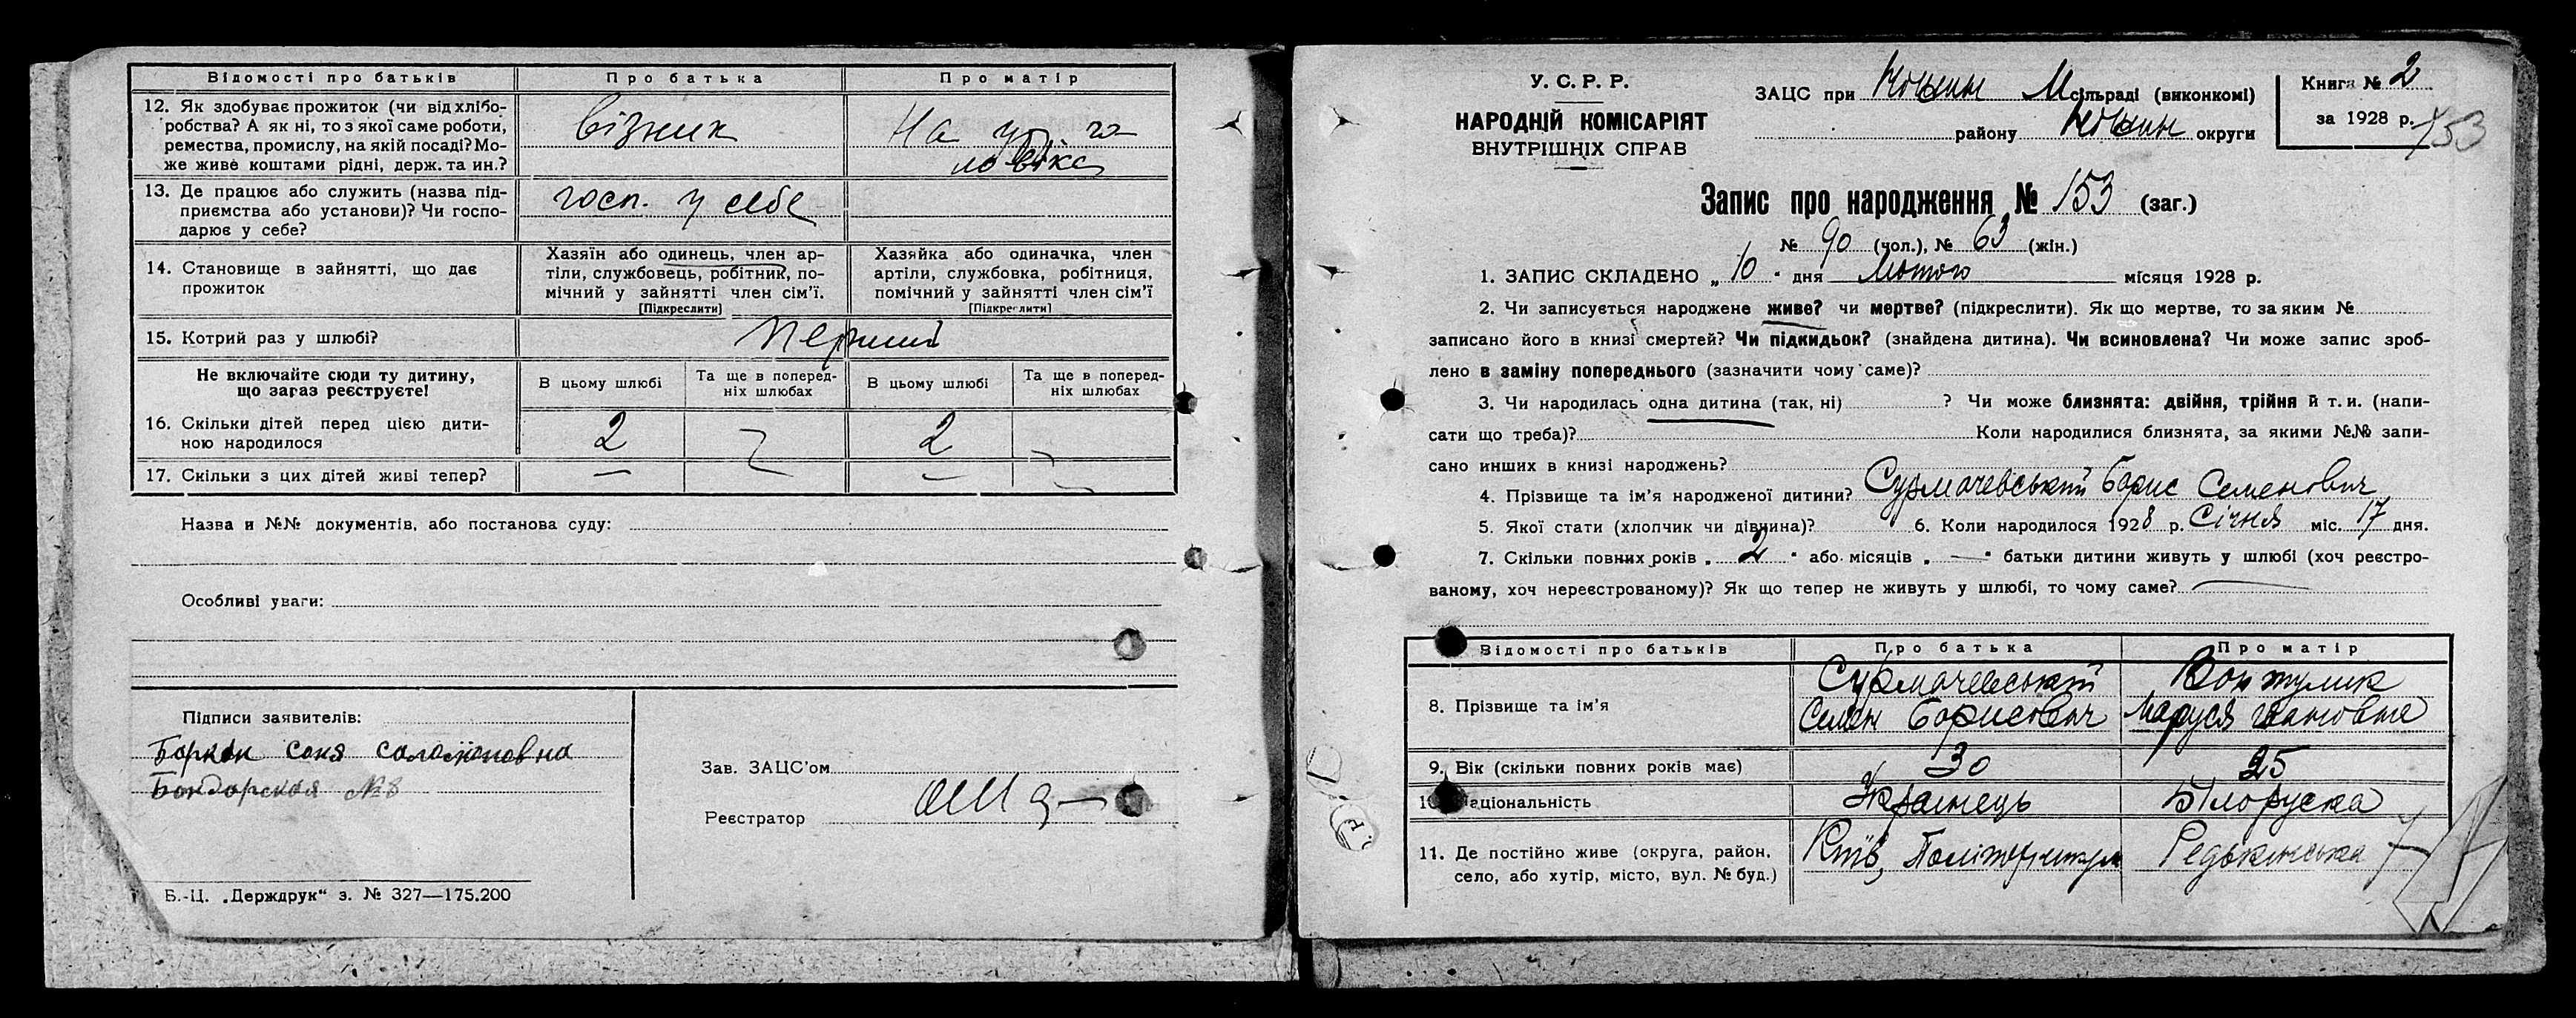 Відомості про батьків
Про батька
Про матір
12. Як здобуває прожиток (чи від хлібо-
робства? А як ні, то з якої саме роботи,
ремества, промислу, на якій посаді? Мо-
же живе коштами рідні, держ. та ин.?
візник
На
13. Де працює або служить (назва під-
приємства або установи)? Чи госпо-
дарює у себе?
госп. у себе
14. Становище в зайнятті, що дає
прожиток
Хазяїн або одинець, член ар-
тіли, службовець, робітник, по-
мічний у зайнятті член сім'ї.
[Підкреслити]
Хазяйка або одиначка, член
артіли, службовка, робітниця,
помічний у зайнятті член сім'ї
[Підкреслити]
15. Котрий раз у шлюбі?
перший
Не включайте сюди ту дитину,
що зараз реєструєте!
В цьому шлюбі
Та ще в поперед-
ніх шлюбах
В цьому шлюбі
Та ще в поперед-
ніх шлюбах
16. Скільки дітей перед цією дити-
ною народилося
2
2
17. Скільки з цих дітей живі тепер?
—
—
Назва и №№ документів, або постанова суду:
Особливі уваги:
Підписи заявителів:
Соня
Бондарская №8
Зав. ЗАЦС'ом
Реєстратор
Б.-Ц. „Держдрук“ з. № 327—175.200
У. С. Р. Р.
НАРОДНІЙ КОМІСАРІЯТ
ВНУТРІШНІХ СПРАВ
ЗАЦС при М сільраді (виконкомі)
району округи
Книга № 2
за 1928 р.
153
Запис про народження № 153 (заг.)
№ 90 (чол.), № 63 (жін.)
1. ЗАПИС СКЛАДЕНО „ 10 " дня Лютого місяця 1928 р.
2. Чи записується народжене живе? чи мертве? (підкреслити). Як що мертве, то за яким №
записано його в книзі смертей? Чи підкидьок? (знайдена дитина). Чи всиновлена? Чи може запис зроб-
лено в заміну попереднього (зазначити чому саме)?
3. Чи народилась одна дитина (так, ні) ? Чи може близнята: двійня, трійня й т. и. (напи-
сати що треба)? Коли народилися близнята, за якими №№ запи-
сано инших в книзі народжень?
4. Прізвище та ім'я народженої дитини? Сурмачевський Борис Семенович
5. Якої стати (хлопчик чи дівчина)? 6. Коли народилося 1928 р. Січня міс. 17 дня.
7. Скільки повних років „ 2 " або місяців „ — " батьки дитини живуть у шлюбі (хоч реєстро-
ваному, хоч нереєстрованому)? Як що тепер не живуть у шлюбі, то чому саме?
Відомості про батьків
Про батька
Про матір
8. Прізвище та ім'я
Сурмачевський
Семен Борисович
Маруся Івановна
9. Вік (скільки повних років має)
30
25
10. Національність
Українець
Білоруска
11. Де постійно живе (округа, район,
село, або хутір, місто, вул. № буд.)
Київ,
Редькинська